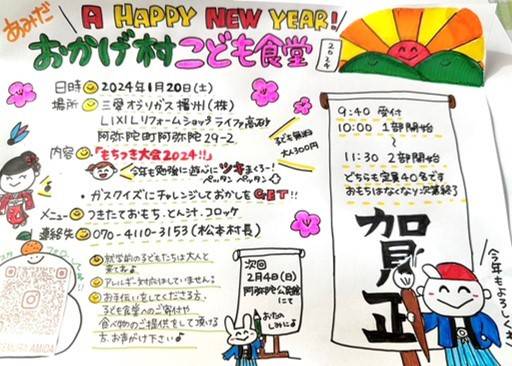 あみだ
A HAPPY NEW YEAR!
おかげ村こども食堂
2024
日時 2024年1月20日(土)
場所 三愛オブリガス播州(株)
LIXILリフォームショップライファ高砂
阿弥陀町阿弥陀29-2
子ども無料
大人300円
内容 「もちつき大会2024!!」
今年も勉強に遊びにツキまくろー!
ペッタン ペッタン
・ガスクイズにチャレンジしておかしをGET!!
メニュー つきたておもち、とん汁、コロッケ
連絡先 070-4110-3153(松本村長)
就学前の子どもたちは大人と
来てね
アレルギー対応はしていません。
お手伝いをしてくださる方、
子ども食堂へのご寄付や
食べ物のご提供をして頂ける
方、お声がけ下さい
次回
2月4日(日)
阿弥陀公民館
にて
おたの
しみに
9:40 受付
10:00 1部開始
〜
11:30 2部開始
どちらも定員40名です
おもちはなくなり次第終了
賀正
今年もよろしくね